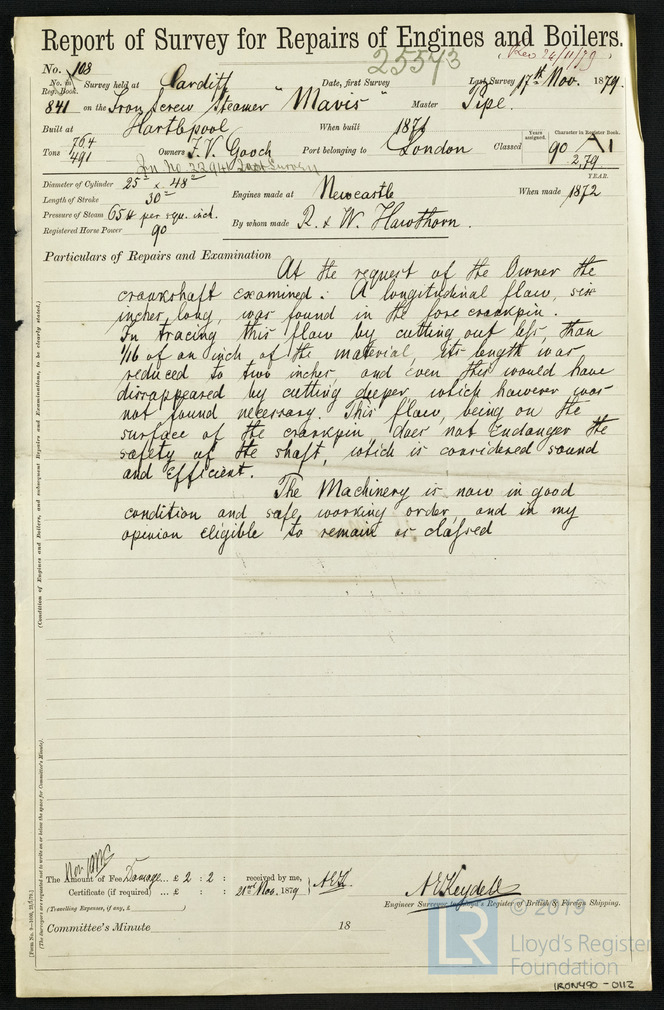 Report of Survey for Repairs of Engines and Boilers.
Rec 24/11/79
25573
No. 108
No. in Reg. Book. Survey held at Cardiff Date, first Survey Last Survey 17th Nov. 1879.
841 on the Iron Screw Steamer "Mavis" Master Pipe.
Built at Hartlepool When built 1872
Tons 764 491 Owners F. V. Gooch Port belonging to London Classed Years assigned. 90 Character in Register Book. A1 2,79
YEAR.
Diameter of Cylinder 25" x 48"
Length of Stroke 30"
Engines made at Newcastle When made 1872
Pressure of Steam 65 lb per squ. inch.
Registered Horse Power 90
By whom made R. & W. Hawthorn.
Particulars of Repairs and Examination
At the request of the Owner the
crankshaft examined: A longitudinal flaw, six
inches long, was found in the fore crankpin.
In tracing this flaw by cutting out less, than
1/16 of an inch of the material, its length was
reduced to two inches and even this would have
disappeared by cutting deeper which however was
not found necessary. This flaw, being on the
surface of the crankpin does not endanger the
safety of the shaft, which is considered sound
and efficient.
The Machinery is now in good
condition and safe working order, and in my
opinion eligible to remain as classed
(Condition of Engines and Boilers, and subsequent Repairs and Examinations, to be clearly stated.)
(The Surveyors are requested not to write on or below the space for Committee's Minute).
The Amount of Fee Damage... £ 2 : 2 : received by me,
Certificate (if required) ... £ : : 21st Nov. 1879 AEK.
(Travelling Expenses, if any, £ )
A E Keydell
Engineer Surveyor to Lloyd's Register of British & Foreign Shipping.
Committee's Minute 18
© 2019
LR
Lloyd's Register
Foundation
IRON490-0112